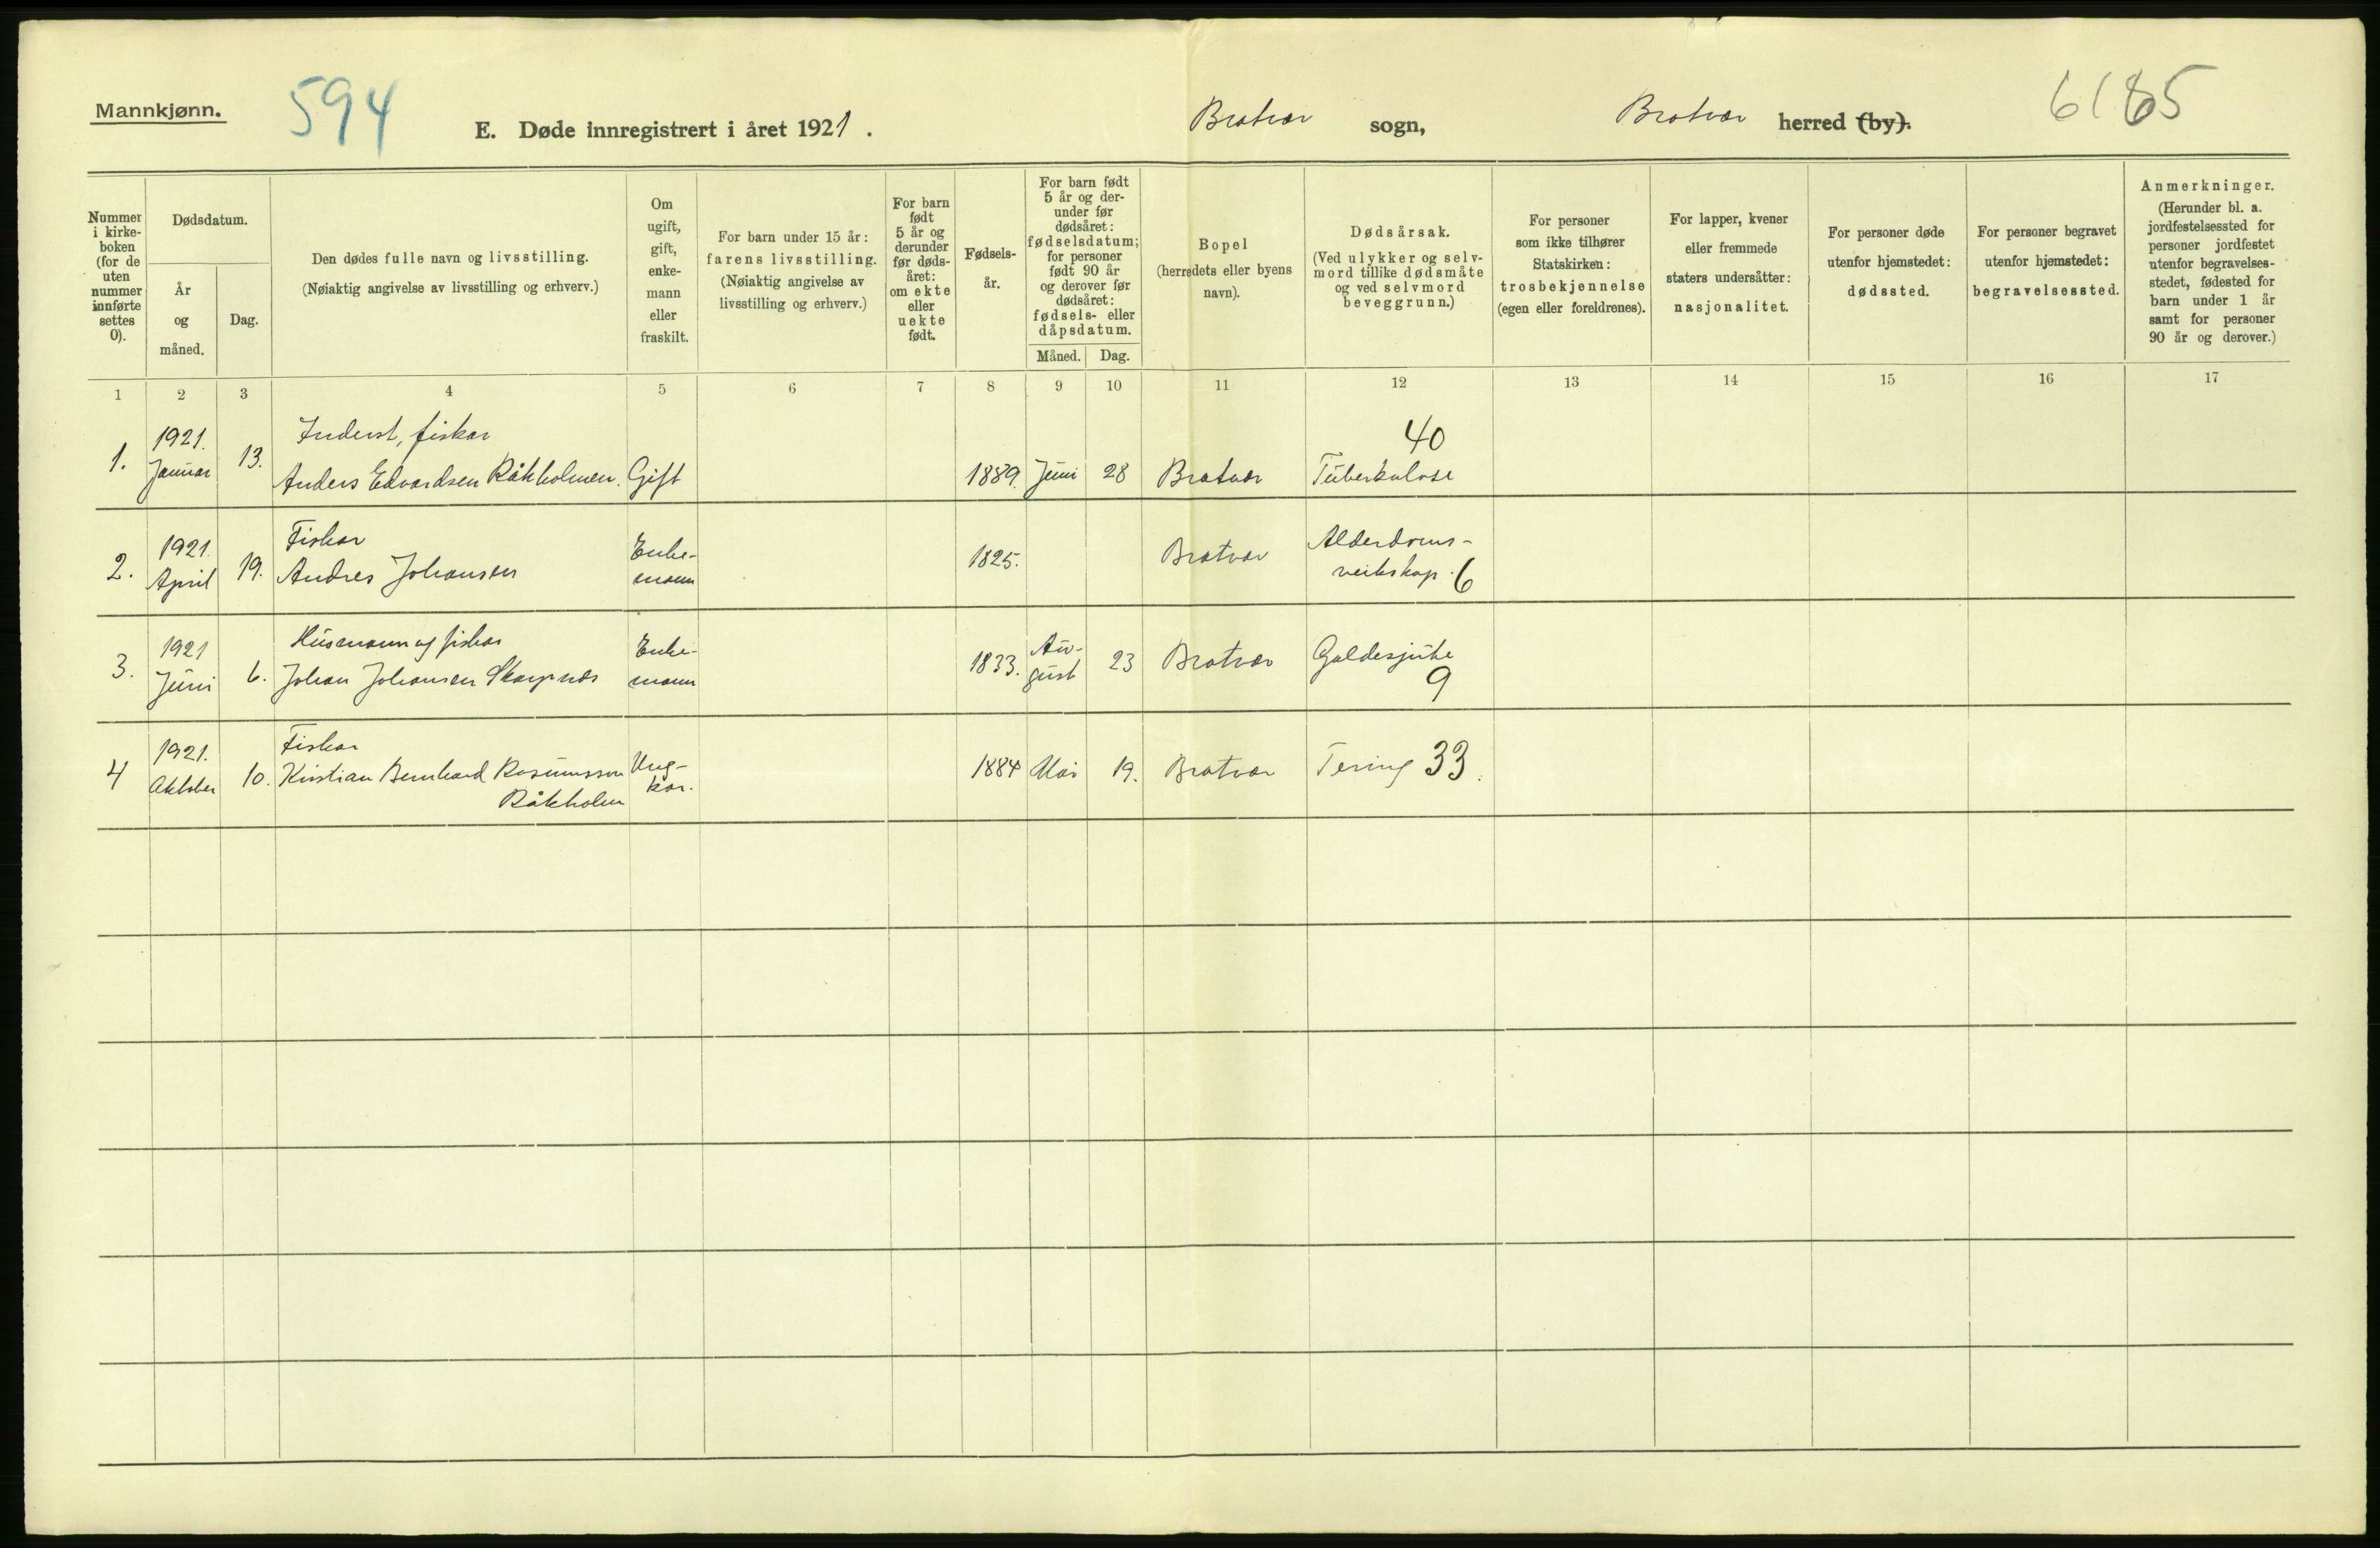 Mannkjønn.
594
E. Døde innregistrert i året 1921.
Bratvær sogn,
Bratvær herred (by).
6185
Nummer i kirkeboken (for de uten nummer innførte settes 0).
Dødsdatum.
År og måned.
Dag.
Den dødes fulle navn og livsstilling.
(Nøiaktig angivelse av livsstilling og erhverv.)
Om ugift, gift, enkemann eller fraskilt.
For barn under 15 år:
farens livsstilling.
(Nøiaktig angivelse av livsstilling og erhverv.)
For barn født 5 år og derunder før dødsåret: om ekte eller uekte født.
Fødselsår.
For barn født 5 år og derunder før dødsåret: fødselsdatum; for personer født 90 år og derover før dødsåret: fødsels- eller dåpsdatum.
Måned. Dag.
Bopel
(herredets eller byens navn).
Dødsårsak.
(Ved ulykker og selvmord tillike dødsmåte og ved selvmord beveggrunn.)
For personer som ikke tilhører Statskirken:
trosbekjennelse
(egen eller foreldrenes).
For lapper, kvener eller fremmede staters undersåtter:
nasjonalitet.
For personer døde utenfor hjemstedet:
dødssted.
For personer begravet utenfor hjemstedet:
begravelsessted.
Anmerkninger.
(Herunder bl. a. jordfestelsessted for personer jordfestet utenfor begravelsesstedet, fødested for barn under 1 år samt for personer 90 år og derover.)
1 2 3 4 5 6 7 8 9 10 11 12 13 14 15 16 17
1921. Inderst, fiskar 40
1. Januar 13. Anders Edvardsen Råkholmen. Gift 1889. Juni 28 Bratvær Tuberkulose
1921. Fiskar Enke- Alderdoms-
2. April 19. Andres Johansen mann 1825. Bratvær veikskap. 6
1921 Husmann og fiskar Enke- Au-
3. Juni 6. Johan Johansen Skarpnes mann 1833. gust 23 Bratvær Galdesjuke
9
1921. Fiskar
4 Oktober 10. Kristian Bernhard Rasmussen Ung- 1884 Mai 19. Bratvær Tering 33.
Råkholm kar.